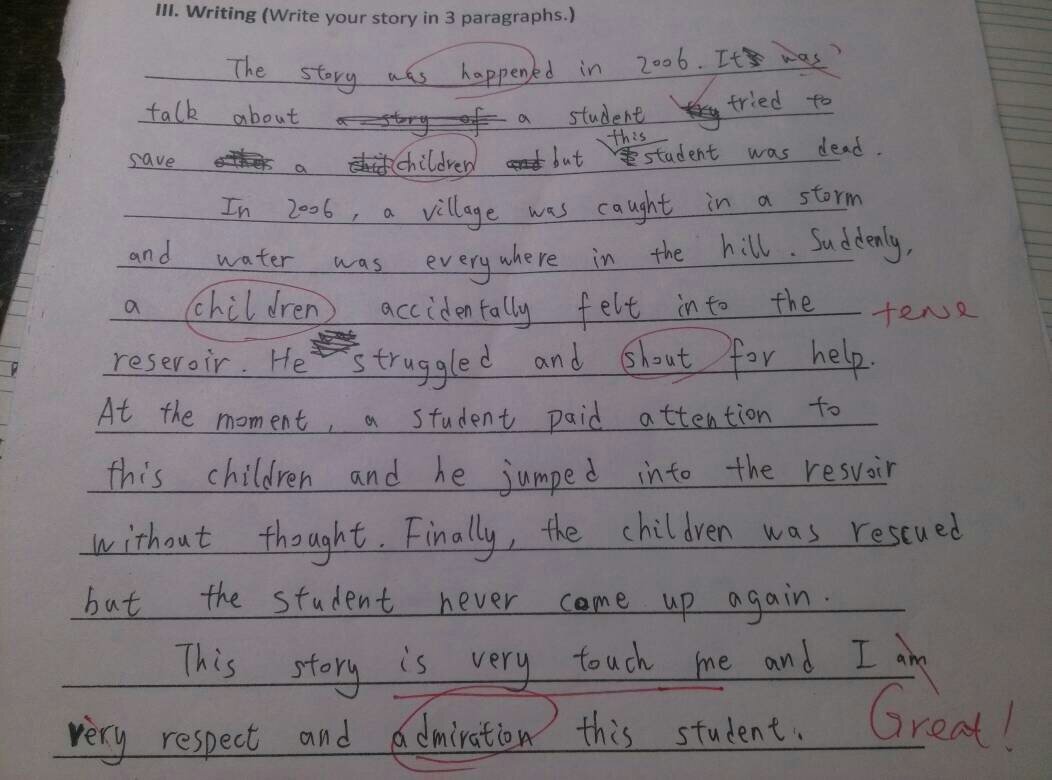 III. Writing (Write your story in 3 paragraphs.)
The story was happened in 2006. It was
talk about a story of a student tried to
save a children but this student was dead.
In 2006, a village was caught in a storm
and water was everywhere in the hill. Suddenly,
a children accidentally felt into the tense
reservoir. He struggled and shout for help.
At the moment, a student paid attention to
this children and he jumped into the resvoir
without thought. Finally, the children was rescued
but the student never come up again.
This story is very touch me and I am
very respect and admiration this student. Great!